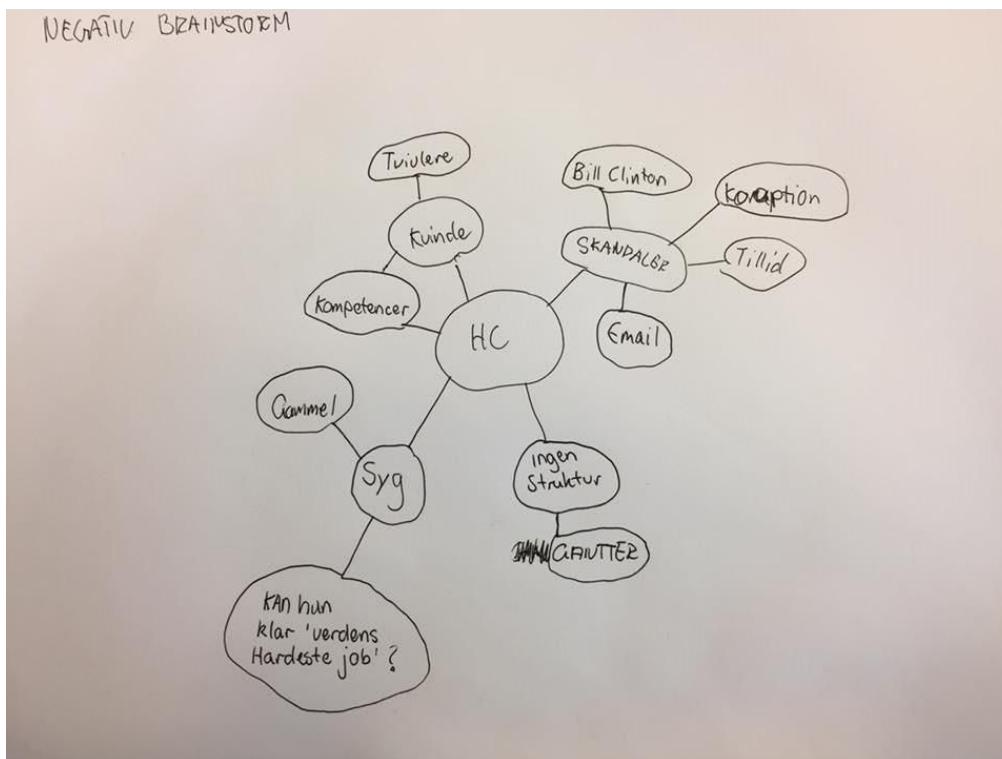 NEGATIV BRAINSTORM
Tvivlere
Kvinde
Kompetencer
HC
Bill Clinton
Koruption
SKANDALER
Tillid
Email
Gammel
Syg
KAN hun
klar 'verdens
Hardeste job' ?
ingen
Struktur